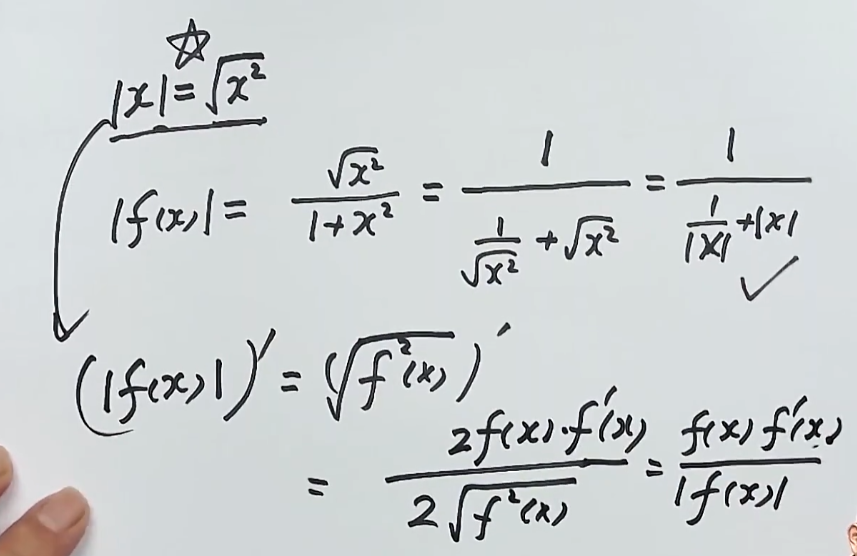 ☆
|x| = √x²
|f(x)| = √x² / (1+x²) = 1 / (1/√x² + √x²) = 1 / (1/|x| + |x|) ✓
(|f(x)|)' = (√f²(x))'
= 2f(x)·f'(x) / 2√f²(x) = f(x)f'(x) / |f(x)|